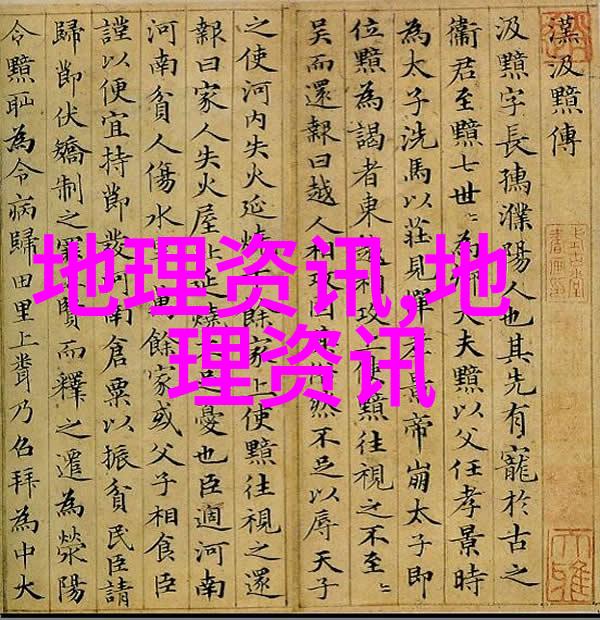 漢汲黯傳
汲黯字長孺濮陽人也其先有寵於古之
衞君至黯七世〻為卿大夫黯以父任孝景時
為太子洗馬以莊見憚孝景帝崩太子即
位黯為謁者東越相攻上使黯往視之不至〻
吳而還報曰越人相攻固其俗然不足以辱天子
之使河内失火延燒千餘家上使黯往視之還
報曰家人失火屋比延燒不足憂也臣適河南
河南貧人傷水旱萬餘家或父子相食臣
謹以便宜持節發河南倉粟以振貧民臣請
歸節伏矯制之罪上賢而釋之遷為滎陽
令黯恥為令病歸田里上聞乃召拜為中大
地理资讯,地
理资讯